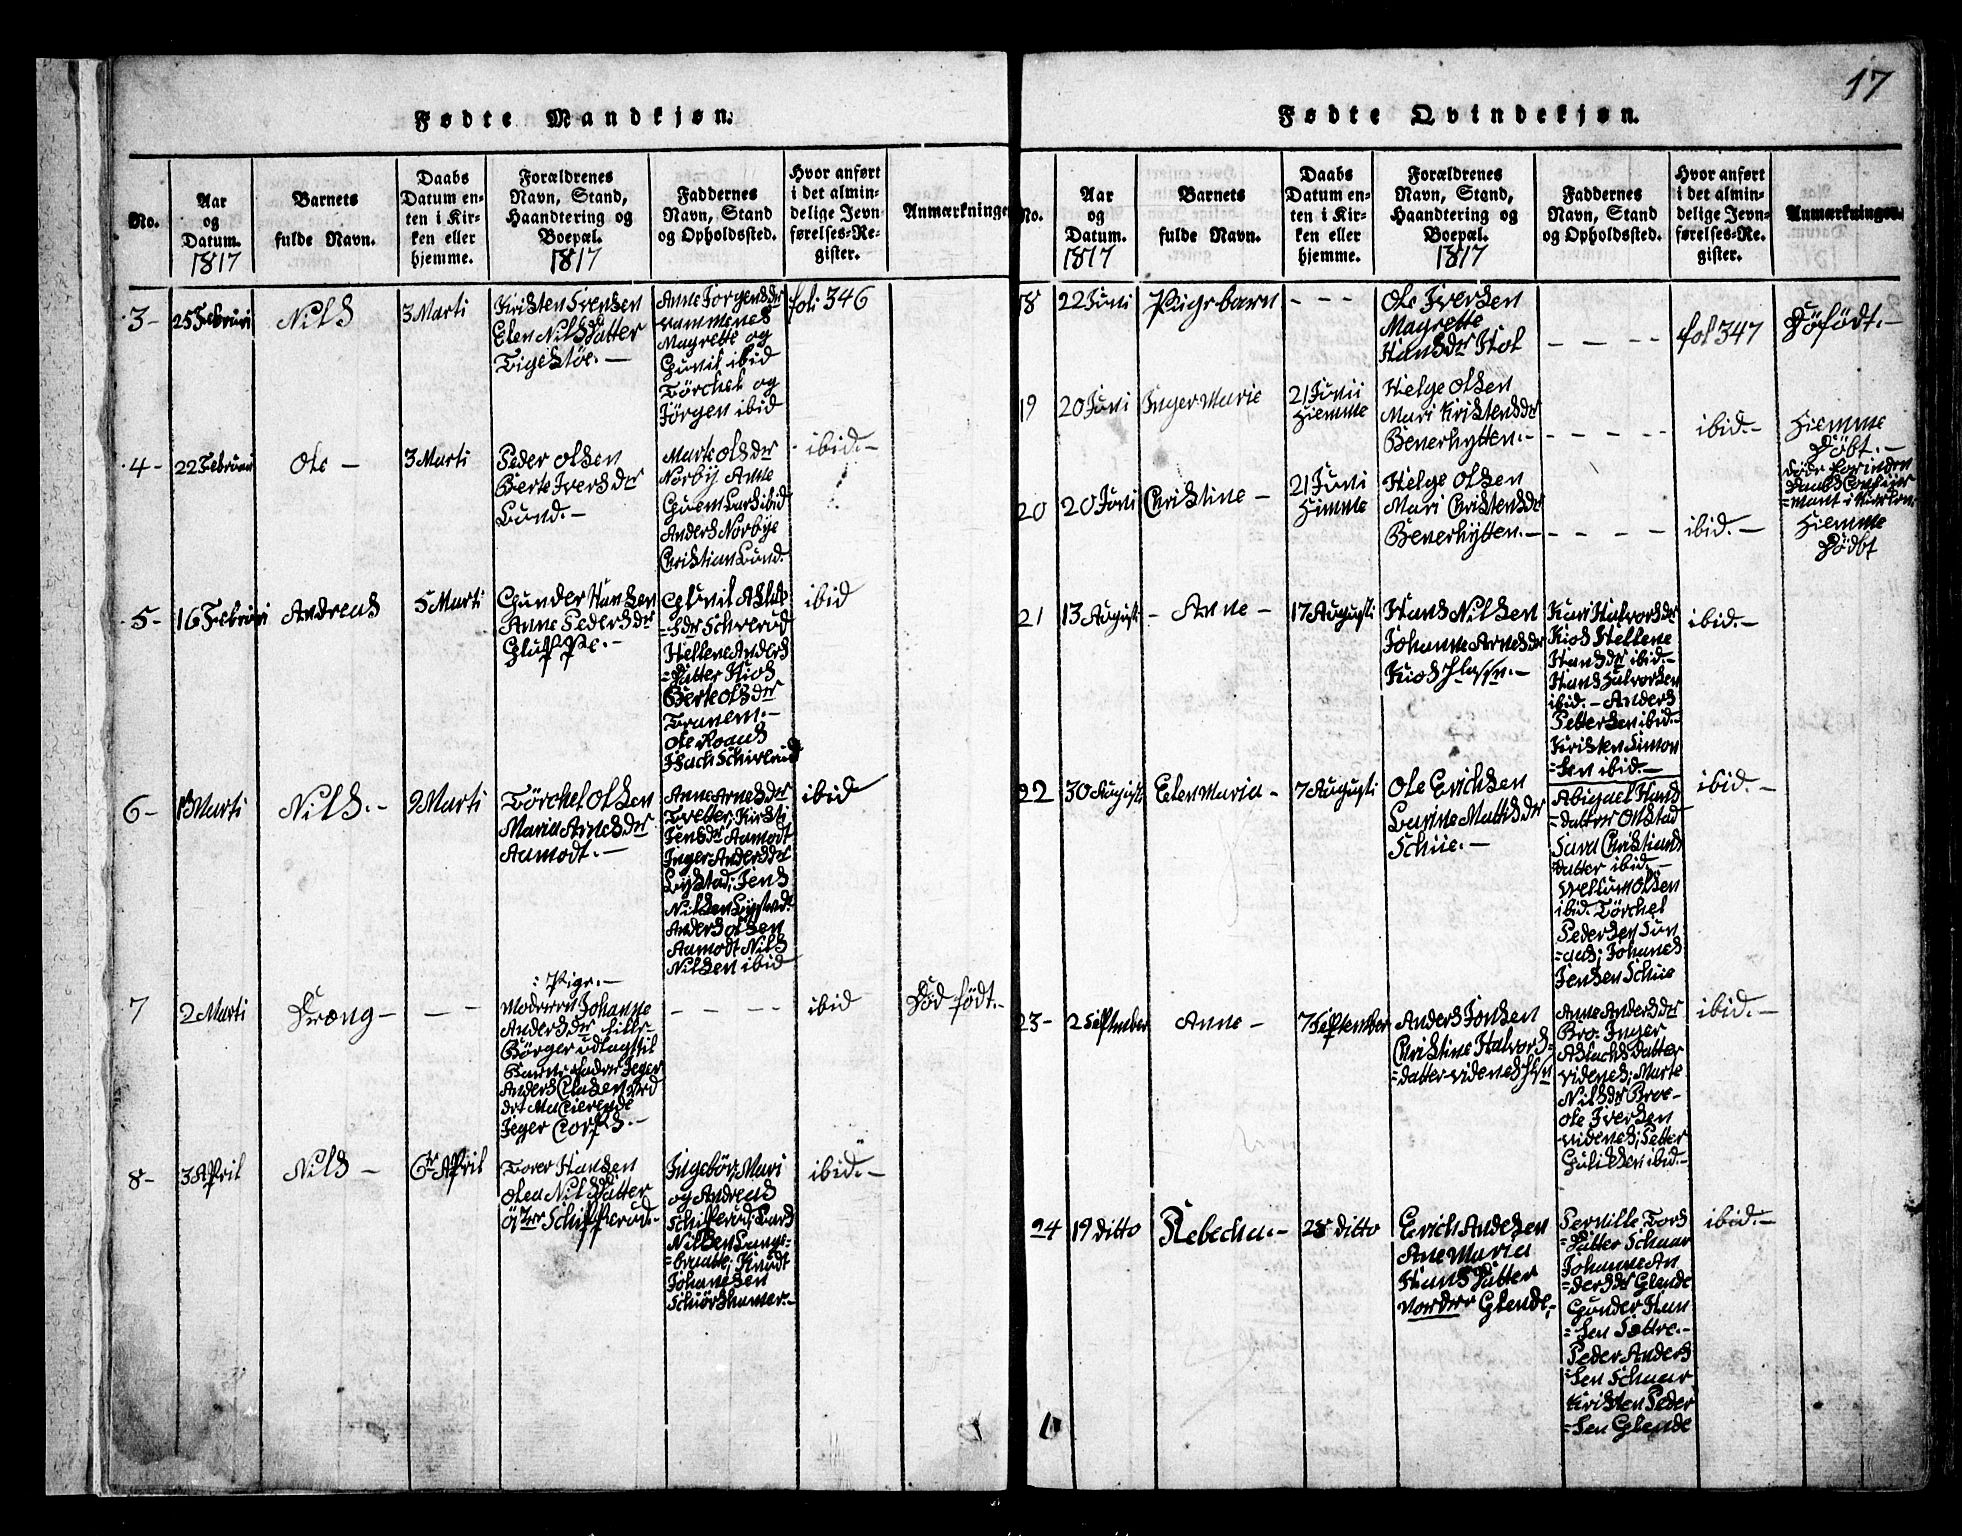 17
Fødte Mandkjøn.
No.
Aar
og
Datum.
1817
Barnets
fulde Navn.
Daabs
Datum en-
ten i Kir-
ken eller
hjemme.
Forældrenes
Navn, Stand,
Haandtering og
Boepæl.
1817
Faddernes
Navn, Stand
og Opholdssted.
Hvor anført
i det almin-
delige Jevn-
førelses-Re-
gister.
Anmærkninger
3-
25 Februari
Nils
3 Marti
Kirsten Svensen
Elen Nils Datter
Tigestøe.-
Anne Jörgensdr
Magrette og
Gunil ibid
Törchel og
Jörgen ibid
fol: 346
4-
22 Februari
Ole -
3 Marti
Peder Olsen
Berte Iversdr
Lund.-
Marte Olsdr
Norbÿ Anne
ibid
Anders Norbye
Christian Lund.
ibid.-
5-
16 Februari
Andreas
5 Marti
Gunder Hansen
Anne Pedersdr
Gluppe.-
Gunil Aslag
=sdr Schierud
Hellene Anders
=Datter Kios
Berte Olsdr
Tranem.-
Ole Roans
Isach Schierud
ibid
6-
1 Marti
Nils.-
9 Marti
Törchel Olsen
Maria Arnesdr
Aamodt.-
Anne Arnesdr
Tvetter, Kirsti
Jensdr Aamodt
Inger Andersdr
Bÿstad; Jens
Nilsen Bystad
Anders Olsen
Aamodt Nils
Nilsen ibid
ibid
7
2 Marti
Dreng-
- -
: Pige.-
Moderen Johanne
Andersdr
Börger udlagt til
Barnefader Jeger
Anders Clasen ved
det
Jeger Corps.-
- - - -
ibid
Död födt.-
8-
3 April
Nils -
6te April
Torer Hansen
Olea Nils Datter
Schipperud.-
Ingebör, Mari
og Andreas
Schipperud; Lars
Nilsen Lange=
=braatte; Knudt
Johanesen
Schiörshamer.-
ibid.-
Fødte Qvindekjøn.
No.
Aar
og
Datum.
1817
Barnets
fulde Navn.
Daabs
Datum en-
ten i Kir-
ken eller
hjemme.
Forældrenes
Navn, Stand,
Haandtering og
Boepæl.
1817
Faddernes
Navn, Stand
og Opholdssted.
Hvor anført
i det almin-
delige Jevn-
førelses-Re-
gister.
Anmærkninger.
18
22 Juni
Pigebarn
- - -
Ole Iversen
Magrette
Hansdr Hol
- - - -
fol 347
Döfödt.-
19
20 Juni
Inger Marie
21 Junii
Hiemme
Helge Olsen
Mari Kristensdr
Beverhytten.-
- - - -
ibid.-
Hiemme
Döbt.-
20
20 Juni
Christine -
21 Juni
Himme
Helge Olsen
Mari Christensdr
Beverhytten.-
- - - -
ibid.-
Döde forinden
Hiemme
Dödbt
21
13 Augusti
- Anne -
17 Augusti
Hans Nilsen
Johanne Arnesdr
Kios
Kari Halvorsdr
Kios Hellene
Hansdr ibid.-
Hans Halvorsen
ibid.- Anders
Pettersen ibid.-
Kristen Simon
=sen ibid.-
ibid.-
22
30 Augusti
Elen Maria -
7 Augusti
Ole Erichsen
Larine Mathisdr
Schiie.-
Abigael Hans
=datter Olstad
Sara Christians
datter ibid.-
Vellum Olsen
ibid. Törchel
Pedersen Sun
=aas; Johanes
Jensen Schiie
ibid.-
23-
2 September
Anne -
7 September
Anders Jonsen
Christine Halvors=
=datter Videnes
Anne Andersdr
Bro: Inger
Aslachs datter
Videnes; Marte
Nilsdr Broe-
Ole Iversen
Videnes; Petter
Gulichsen ibid.-
ibid.-
24
19 ditto
Rebecha.-
28 ditto
Erich Andesen
Ane Maria
Hans Datter
Nordre Glende.
Pernille Tors
=Datter Schaar
Johanne An
=dersdr Glende
Gunder Han
=sen Sættre.-
Peder Anders
=sen Schaar
Kristen Peder
=sen Glende
ibid.-